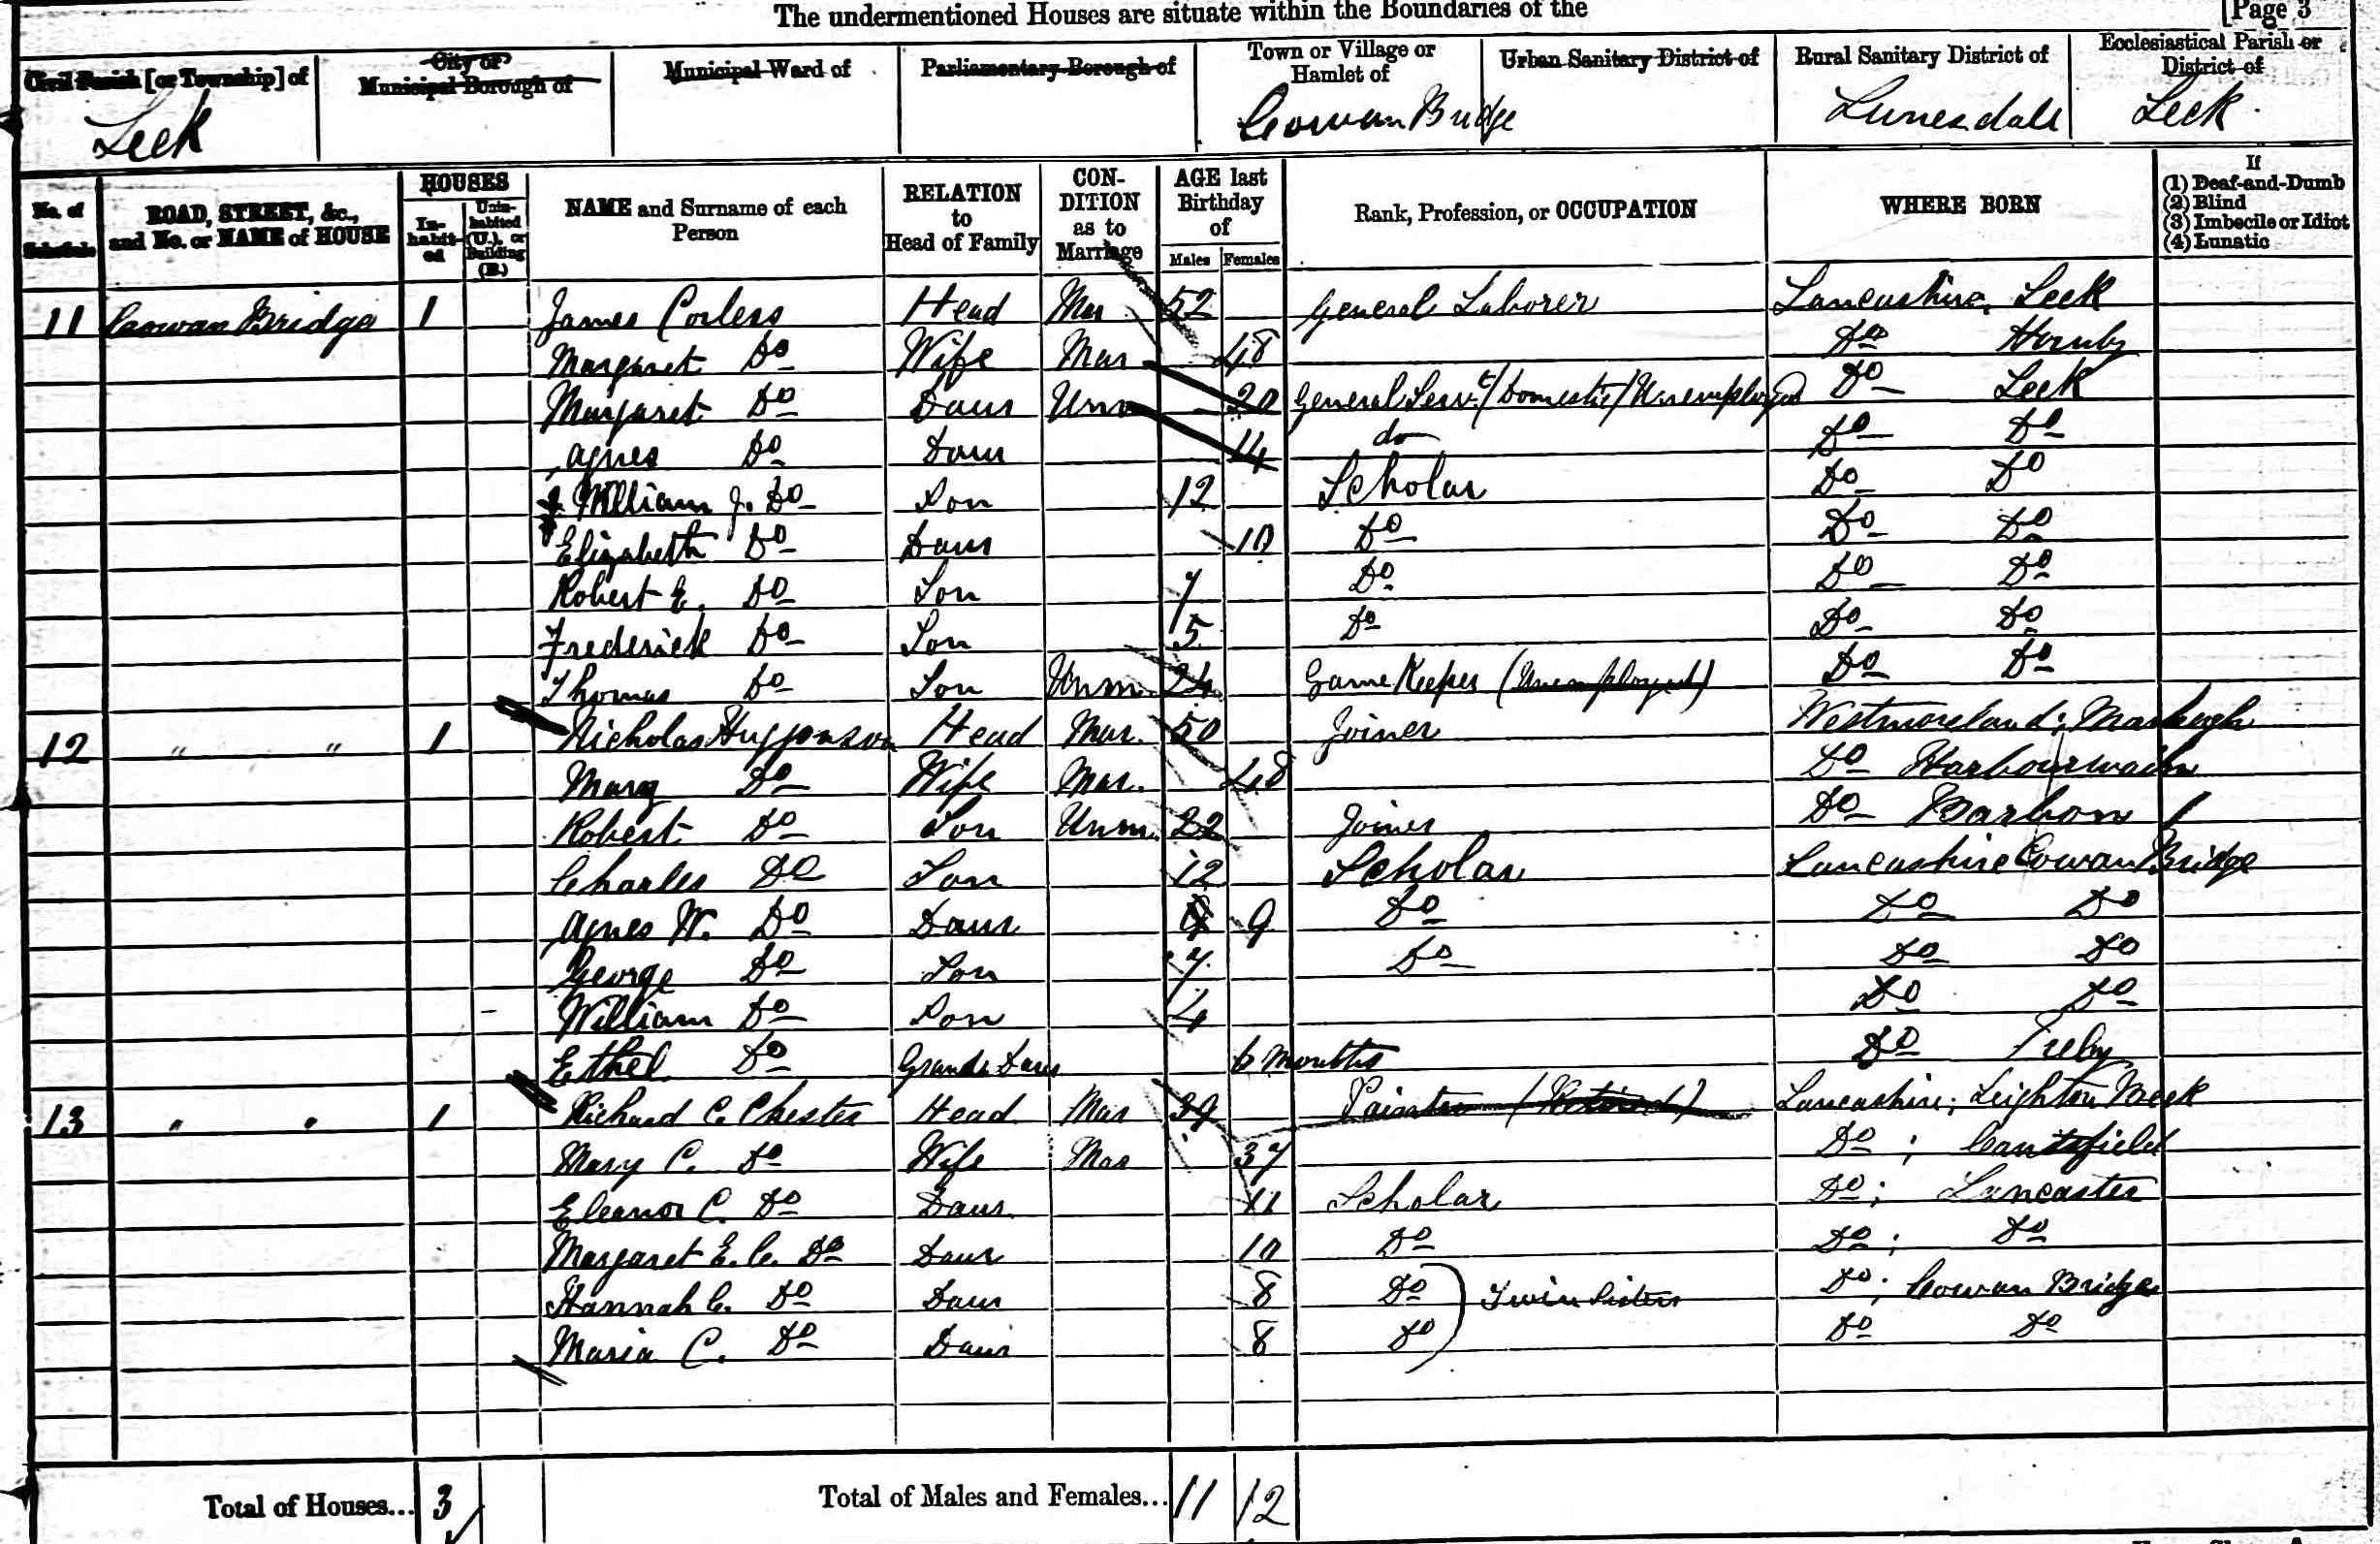 The undermentioned Houses are situate within the Boundaries of the [Page 3
Civil Parish [or Township] of City or Municipal Borough of Municipal Ward of Parliamentary Borough of Town or Village or Hamlet of Urban Sanitary District of Rural Sanitary District of Ecclesiastical Parish or District of
Leck Cowan Bridge Lunesdale Leck
No. of Schedule ROAD, STREET, &c., and No. or NAME of HOUSE HOUSES Inhabited Uninhabited (U.), or Building (B.) NAME and Surname of each Person RELATION to Head of Family CONDITION as to Marriage AGE last Birthday of Males Females Rank, Profession, or OCCUPATION WHERE BORN If (1) Deaf-and-Dumb (2) Blind (3) Imbecile or Idiot (4) Lunatic
11 Cowan Bridge 1 James Corless Head Mar 52 General Laborer Lancashire, Leck
Margaret Do Wife Mar 48 Do Hornby
Margaret Do Daur Unm 20 General Servt (Domestic) Unemployed Do Leck
Agnes Do Daur 14 do Do Do
William J. Do Son 12 Scholar Do Do
Elizabeth Do Daur 10 Do Do Do
Robert E. Do Son 7 Do Do Do
Frederick Do Son 5 Do Do Do
Thomas Do Son Unm 24 Game Keeper (Unemployed) Do Do
12 " " 1 Nicholas Huggonson Head Mar. 50 Joiner Westmoreland;
Mary Do Wife Mar. 48 Do
Robert Do Son Unm. 22 Joiner Do Barbon 1
Charles Do Son 12 Scholar Lancashire Cowan Bridge
Agnes W. Do Daur 9 9 Do Do Do
George Do Son 7 Do Do Do
William Do Son 4 Do Do
Ethel Do Grand Daur 6 months Do Ireby
13 " " 1 Richard C. Chester Head Mar 39 (Retired) Lancashire; Leighton Beck
Mary C. Do Wife Mar 37 Do; Cantsfield
Eleanor C. Do Daur 11 Scholar Do; Lancaster
Margaret E. C. Do Daur 10 Do Do; Do
Hannah C. Do Daur 8 Do ) Twin Sisters Do; Cowan Bridge
Maria C. Do Daur 8 Do Do Do
Total of Houses... 3 Total of Males and Females... 11 12